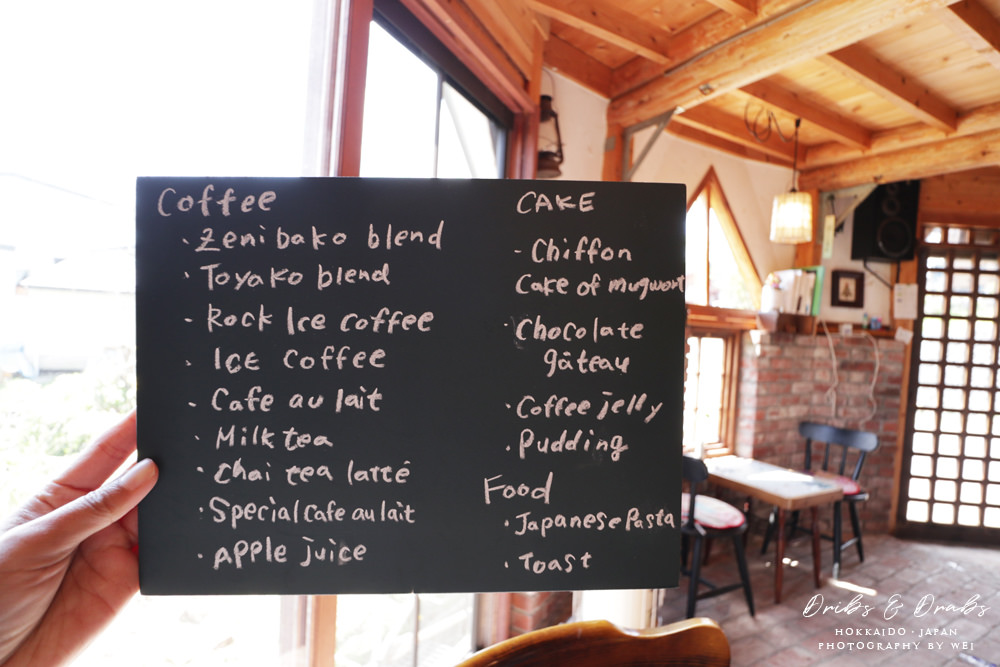 Coffee
· Zenibako blend
· Toyako blend
· Rock Ice coffee
· ICE coffee
· Cafe au lait
· Milk tea
· Chai tea lattê
· Special Cafe au lait
· APPle juice
CAKE
- Chiffon
Cake of mugwort
· Chocolate
gâteau
· Coffee jelly
· Pudding
Food
· Japanese Pasta
· Toast
Dribs & Drabs
HOKKAIDO · JAPAN
PHOTOGRAPHY BY WEI